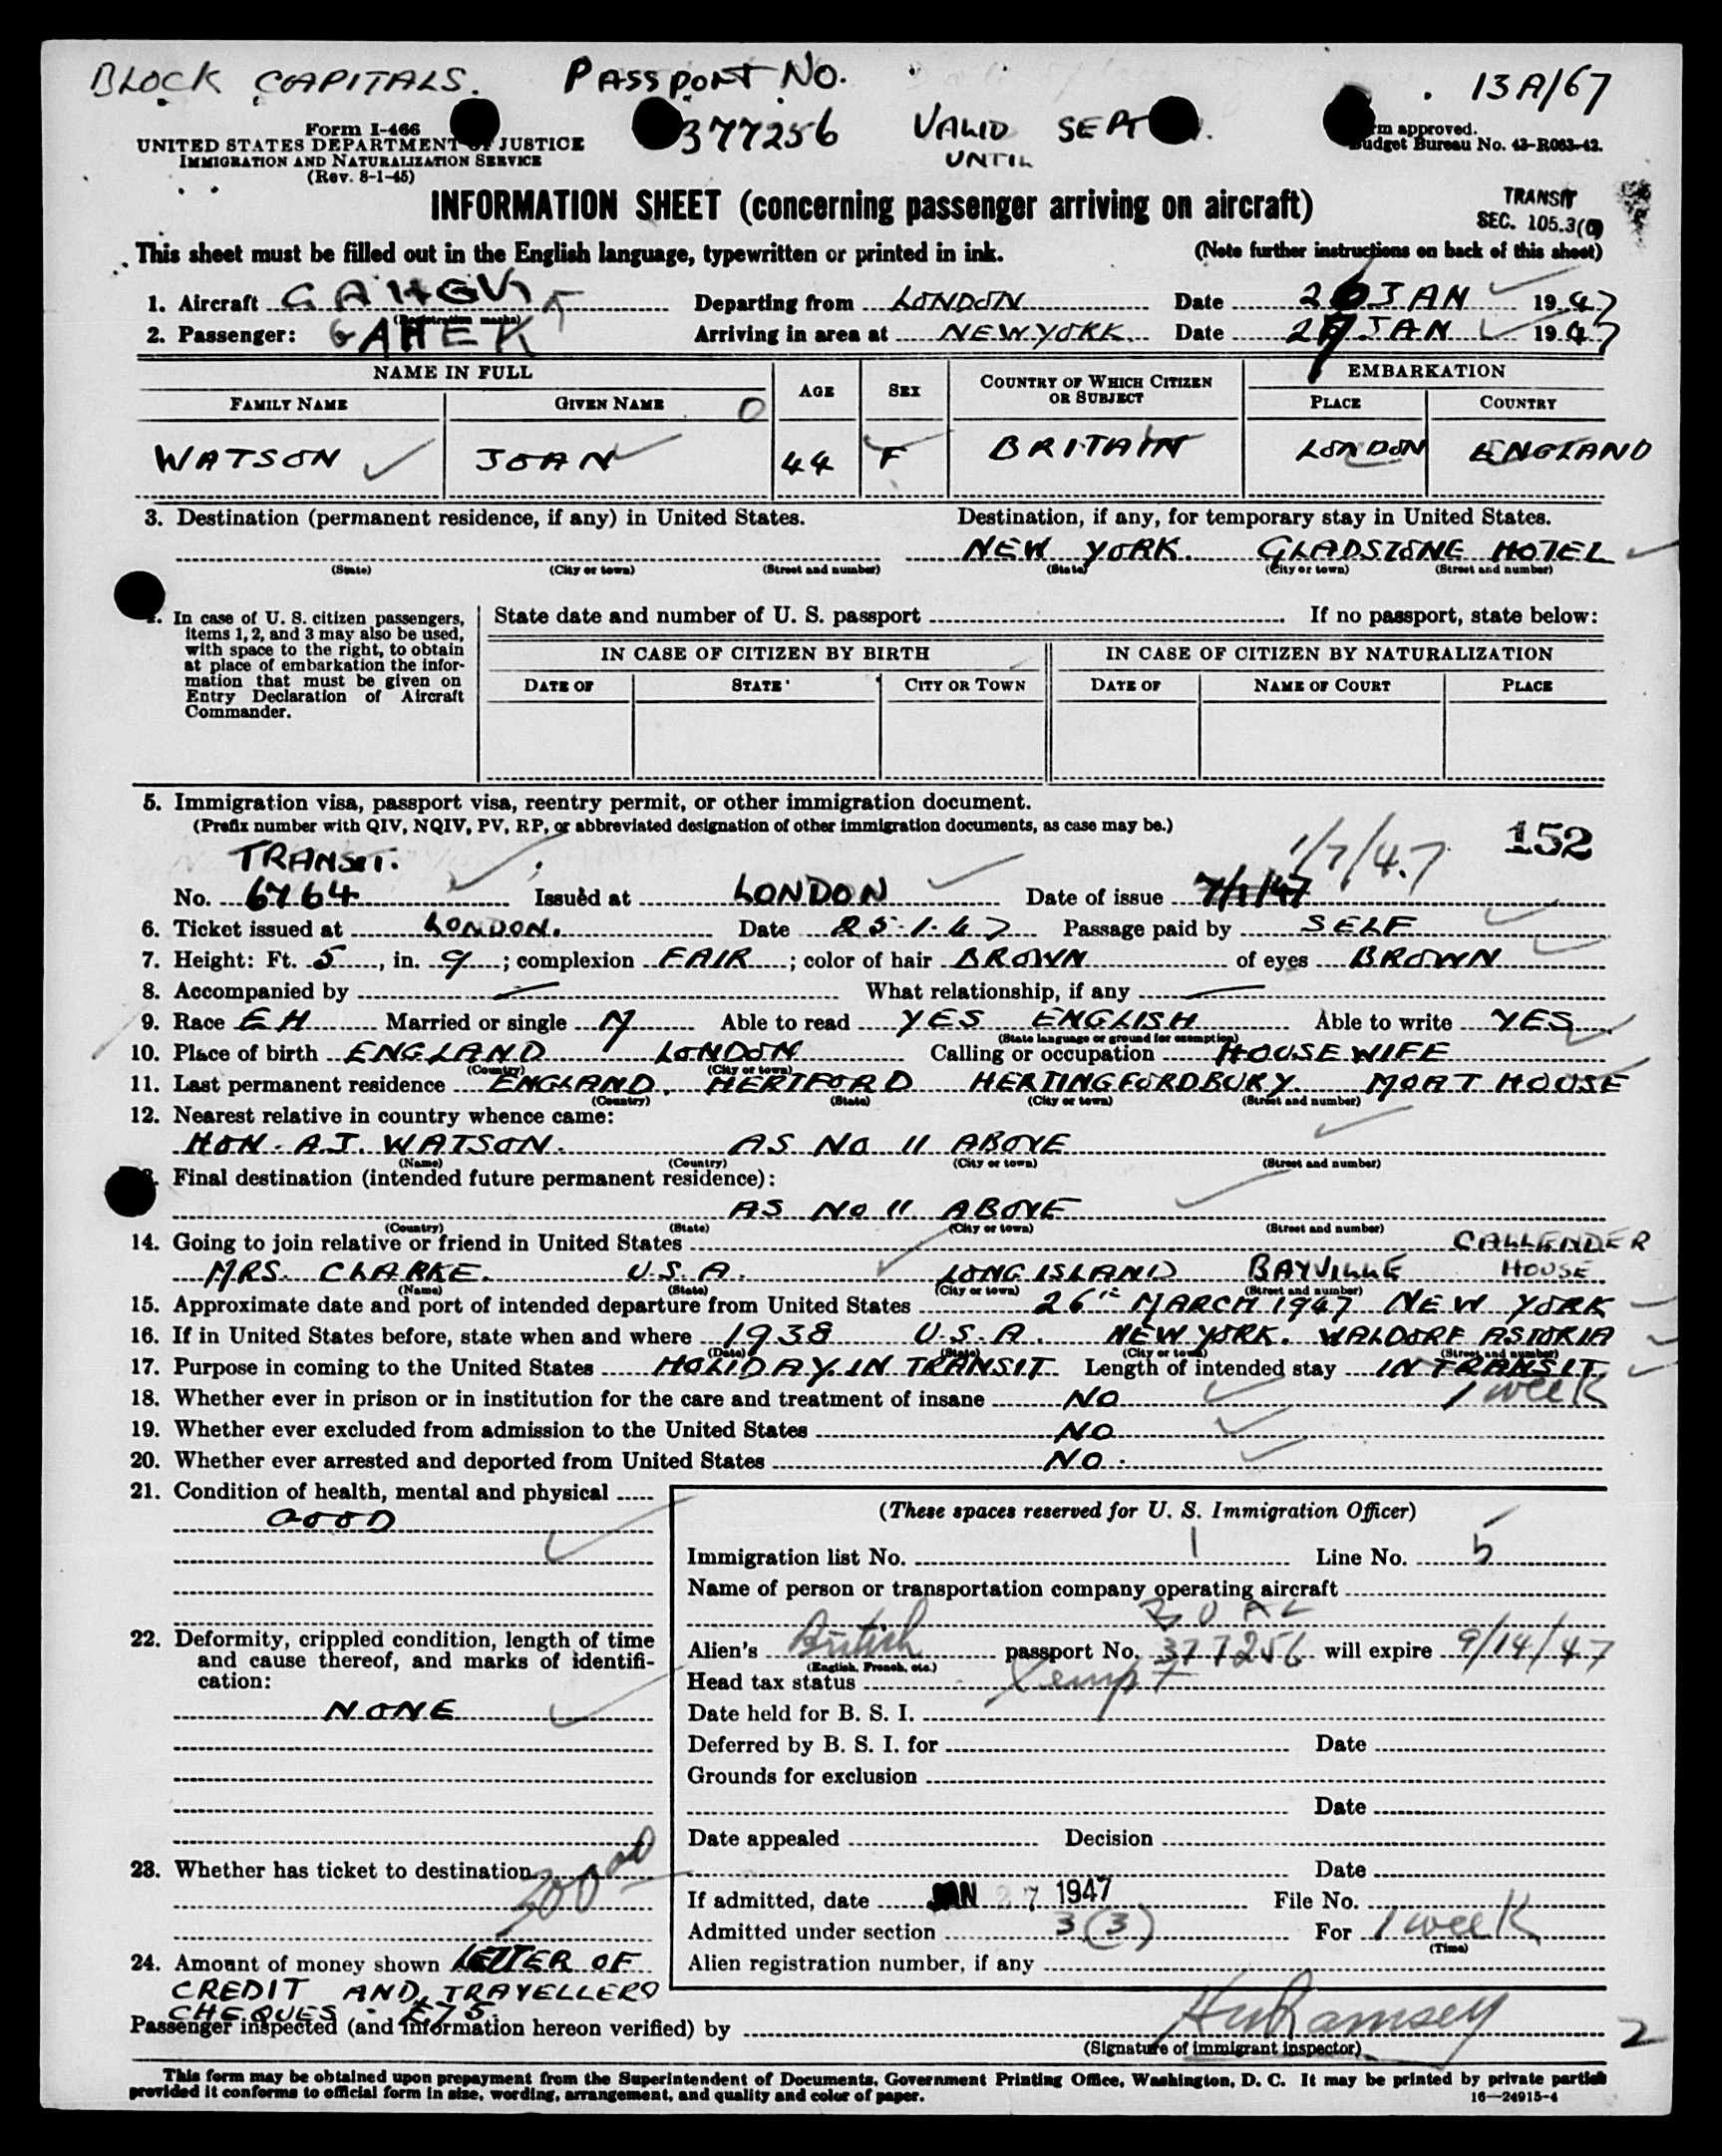 BLOCK CAPITALS. PASSPORT NO. 13A/67
377256 VALID UNTIL SEPT
Form I-466
UNITED STATES DEPARTMENT OF JUSTICE
IMMIGRATION AND NATURALIZATION SERVICE
(Rev. 8-1-45)
rm approved.
Budget Bureau No. 43-R063-42.
INFORMATION SHEET (concerning passenger arriving on aircraft)
TRANSIT
SEC. 105.3
This sheet must be filled out in the English language, typewritten or printed in ink. (Note further instructions on back of this sheet)
1. Aircraft (Registration marks) Departing from LONDON Date 26 JAN 1947
2. Passenger: GAHEK Arriving in area at NEW YORK Date 27 JAN 1947
NAME IN FULL AGE SEX COUNTRY OF WHICH CITIZEN OR SUBJECT EMBARKATION
FAMILY NAME GIVEN NAME PLACE COUNTRY
WATSON JOAN 44 F BRITAIN LONDON ENGLAND
3. Destination (permanent residence, if any) in United States. Destination, if any, for temporary stay in United States.
NEW YORK. GLADSTONE HOTEL
(State) (City or town) (Street and number) (State) (City or town) (Street and number)
In case of U. S. citizen passengers, items 1, 2, and 3 may also be used, with space to the right, to obtain at place of embarkation the information that must be given on Entry Declaration of Aircraft Commander.
State date and number of U. S. passport If no passport, state below:
IN CASE OF CITIZEN BY BIRTH IN CASE OF CITIZEN BY NATURALIZATION
DATE OF STATE CITY OR TOWN DATE OF NAME OF COURT PLACE
5. Immigration visa, passport visa, reentry permit, or other immigration document.
(Prefix number with QIV, NQIV, PV, RP, or abbreviated designation of other immigration documents, as case may be.)
152
TRANSIT. 1/7/47
No. 6764 Issued at LONDON Date of issue 7/1/47
6. Ticket issued at LONDON. Date 25.1.47 Passage paid by SELF
7. Height: Ft. 5, in. 9; complexion FAIR; color of hair BROWN of eyes BROWN
8. Accompanied by — What relationship, if any —
9. Race EH Married or single M Able to read YES ENGLISH Able to write YES
(State language or ground for exemption)
10. Place of birth ENGLAND LONDON Calling or occupation HOUSEWIFE
(Country) (City or town)
11. Last permanent residence ENGLAND. HERTFORD HERTINGFORDBURY. MOAT HOUSE
(Country) (State) (City or town) (Street and number)
12. Nearest relative in country whence came:
HON. A.J. WATSON. AS NO 11 ABOVE
(Name) (Country) (City or town) (Street and number)
Final destination (intended future permanent residence):
AS NO 11 ABOVE
(Country) (State) (City or town) (Street and number)
14. Going to join relative or friend in United States CALLENDER
MRS. CLARKE. U.S.A. LONG ISLAND BAYVILLE HOUSE
(Name) (State) (City or town) (Street and number)
15. Approximate date and port of intended departure from United States 26th MARCH 1947 NEW YORK
16. If in United States before, state when and where 1938 U.S.A. NEW YORK. WALDORF ASTORIA
(Date) (State) (City or town) (Street and number)
17. Purpose in coming to the United States HOLIDAY. IN TRANSIT Length of intended stay IN TRANSIT
18. Whether ever in prison or in institution for the care and treatment of insane NO 1 week
19. Whether ever excluded from admission to the United States NO
20. Whether ever arrested and deported from United States NO.
21. Condition of health, mental and physical
GOOD
22. Deformity, crippled condition, length of time and cause thereof, and marks of identification:
NONE
23. Whether has ticket to destination
24. Amount of money shown LETTER OF
CREDIT AND TRAVELLERS
CHEQUES. £75.
(These spaces reserved for U. S. Immigration Officer)
Immigration list No. 1 Line No. 5
Name of person or transportation company operating aircraft
Alien's British passport No. 377256 will expire 9/14/47
(English, French, etc.)
Head tax status
Date held for B. S. I.
Deferred by B. S. I. for Date
Grounds for exclusion
Date
Date appealed Decision
Date
If admitted, date JAN 27 1947 File No.
Admitted under section 3(3) For 1 week
(Time)
Alien registration number, if any
Passenger inspected (and information hereon verified) by Ramsey 2
(Signature of immigrant inspector)
This form may be obtained upon prepayment from the Superintendent of Documents, Government Printing Office, Washington, D. C. It may be printed by private parties
provided it conforms to official form in size, wording, arrangement, and quality and color of paper. 16—24915-4